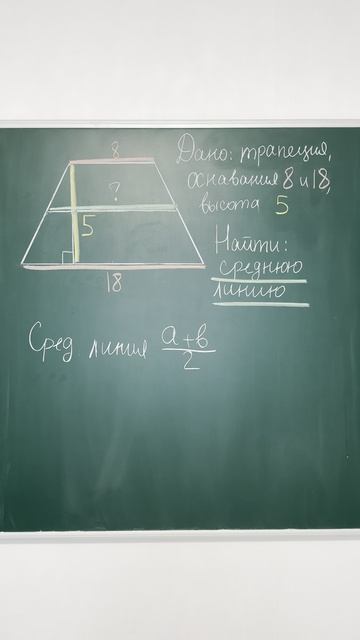 8
?
5
18
Дано: трапеция,
оснавания 8 и 18,
высота 5
Найти:
среднюю
линию
Сред. линия a+b
2